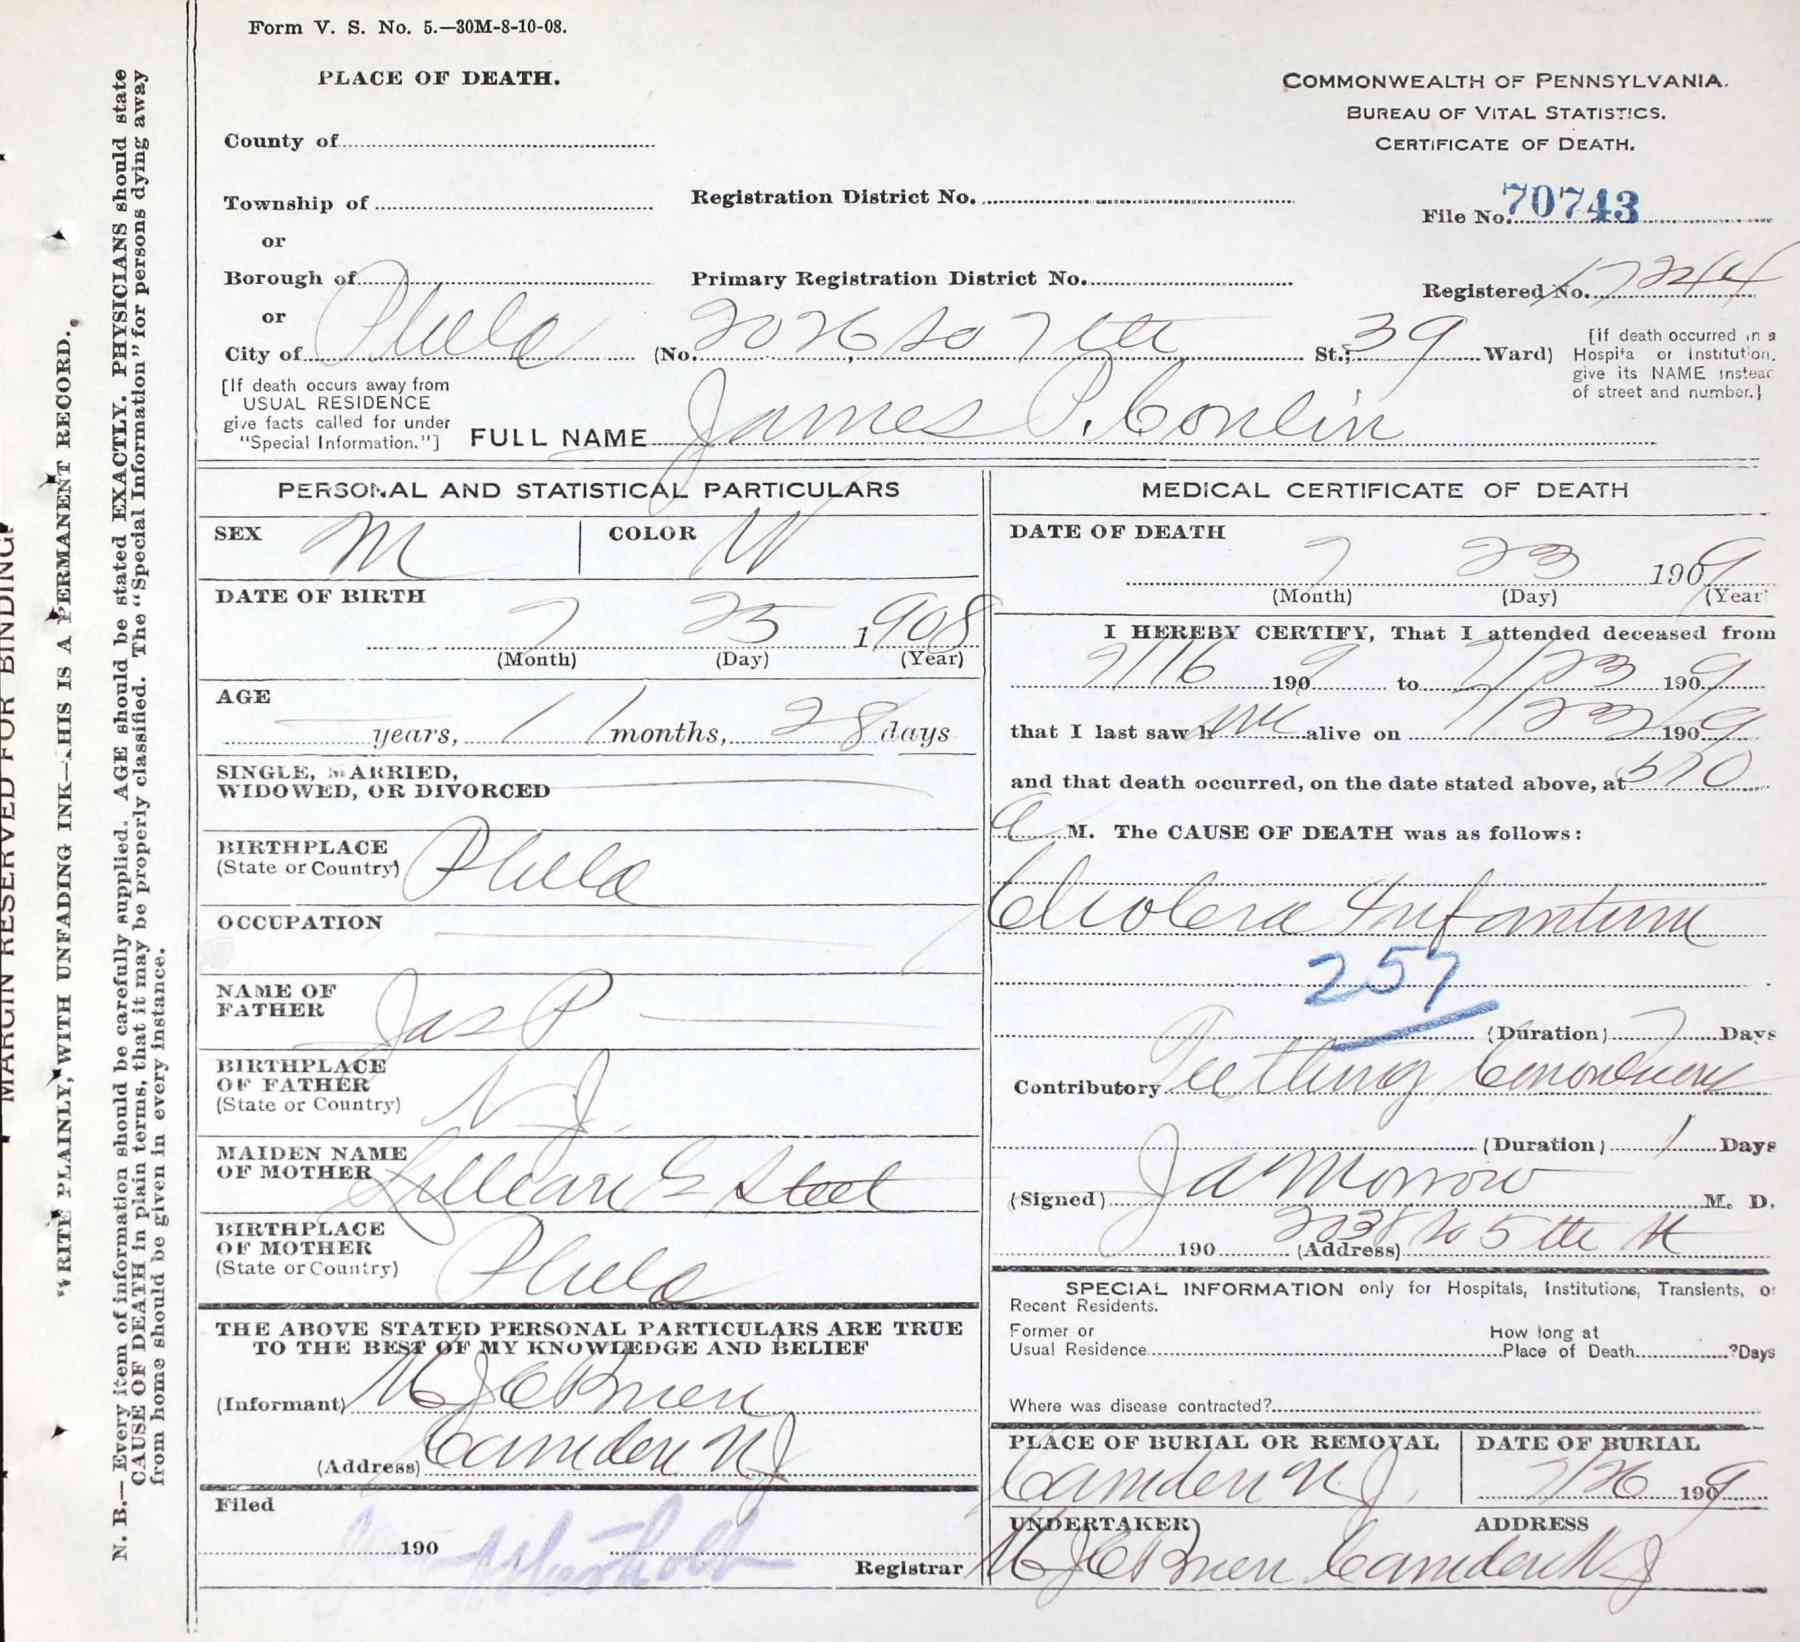 Form V. S. No. 5.—30M-8-10-08.
PLACE OF DEATH.
COMMONWEALTH OF PENNSYLVANIA.
BUREAU OF VITAL STATISTICS.
CERTIFICATE OF DEATH.
County of
Township of
or
Borough of
or
City of Phila
Registration District No.
Primary Registration District No.
File No. 70743
Registered No. 17244
(No. 2026 So 7th St.; 39 Ward)
[If death occurred in a
Hospital or Institution,
give its NAME instead
of street and number.]
[If death occurs away from
USUAL RESIDENCE
give facts called for under
"Special Information."]
FULL NAME James P. Conlin
PERSONAL AND STATISTICAL PARTICULARS
SEX M
COLOR W
DATE OF BIRTH
7 25 1908
(Month) (Day) (Year)
AGE
years, 11 months, 28 days
SINGLE, MARRIED,
WIDOWED, OR DIVORCED
BIRTHPLACE
(State or Country) Phila
OCCUPATION
NAME OF
FATHER Jas P
BIRTHPLACE
OF FATHER
(State or Country) N J.
MAIDEN NAME
OF MOTHER Lillian E Steet
BIRTHPLACE
OF MOTHER
(State or Country) Phila
THE ABOVE STATED PERSONAL PARTICULARS ARE TRUE
TO THE BEST OF MY KNOWLEDGE AND BELIEF
(Informant) M J O'Brien
(Address) Camden N J
Filed
190
Registrar
MEDICAL CERTIFICATE OF DEATH
DATE OF DEATH
7 23 1909
(Month) (Day) (Year)
I HEREBY CERTIFY, That I attended deceased from
7/16 1909 to 7/23 1909
that I last saw him alive on 7/22 1909
and that death occurred, on the date stated above, at 510
a M. The CAUSE OF DEATH was as follows:
Cholera Infantum
257
(Duration) 7 Days
Contributory Teething
(Duration) 1 Days
(Signed) J A Morrow M. D.
190 (Address) 2038 So 5th St
SPECIAL INFORMATION only for Hospitals, Institutions, Transients, or
Recent Residents.
Former or
Usual Residence
How long at
Place of Death ?Days
Where was disease contracted?
PLACE OF BURIAL OR REMOVAL
Camden N J.
DATE OF BURIAL
7/26 1909
UNDERTAKER
M J O'Brien
ADDRESS
Camden N J
MARGIN RESERVED FOR BINDING.
WRITE PLAINLY, WITH UNFADING INK—THIS IS A PERMANENT RECORD.
N. B.—Every item of information should be carefully supplied. AGE should be stated EXACTLY. PHYSICIANS should state
CAUSE OF DEATH in plain terms, that it may be properly classified. The "Special Information" for persons dying away
from home should be given in every instance.